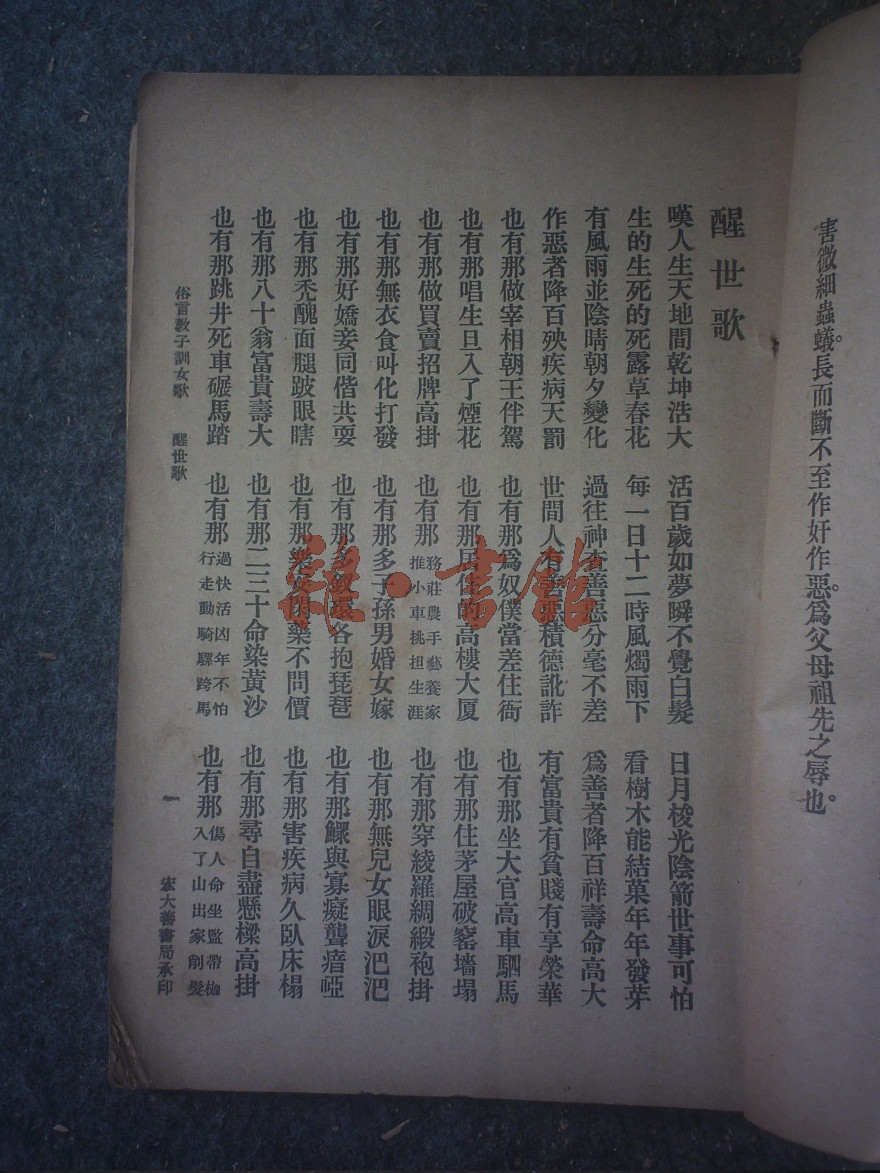 害微細蟲蟻。長而斷不至作奸作惡。爲父母祖先之辱也。
醒世歌
嘆人生天地間乾坤浩大 活百歲如夢瞬不覺白髮 日月梭光陰箭世事可怕
生的生死的死露草春花 每一日十二時風燭雨下 看樹木能結菓年年發芽
有風雨並陰晴朝夕變化 過往神查善惡分毫不差 爲善者降百祥壽命高大
作惡者降百殃疾病天罰 世間人有善惡積德訛詐 有富貴有貧賤有享榮華
也有那做宰相朝王伴駕 也有那爲奴僕當差住衙 也有那坐大官高車駟馬
也有那唱生旦入了煙花 也有那居住的高樓大厦 也有那住茅屋破窰墻塌
也有那做買賣招牌高掛 也有那務莊農手藝養家推小車挑担生涯 也有那穿綾羅綢緞袍掛
也有那無衣食叫化打發 也有那多子孫男婚女嫁 也有那無兒女眼淚汜汜
也有那好嬌妾同偕共耍 也有那多奴環各抱琵琶 也有那鰥與寡癡聾瘖啞
也有那禿醜面腿跛眼瞎 也有那藥不問價 也有那害疾病久臥床榻
也有那八十翁富貴壽大 也有那二三十命染黃沙 也有那尋自盡懸樑高掛
也有那跳井死車碾馬踏 也有那過快活凶年不怕行走動騎騾跨馬 也有那傷人命坐監帶枷入了山出家削髮
俗言教子訓女歌 醒世歌 一 宏大善書局承印
雜·書館